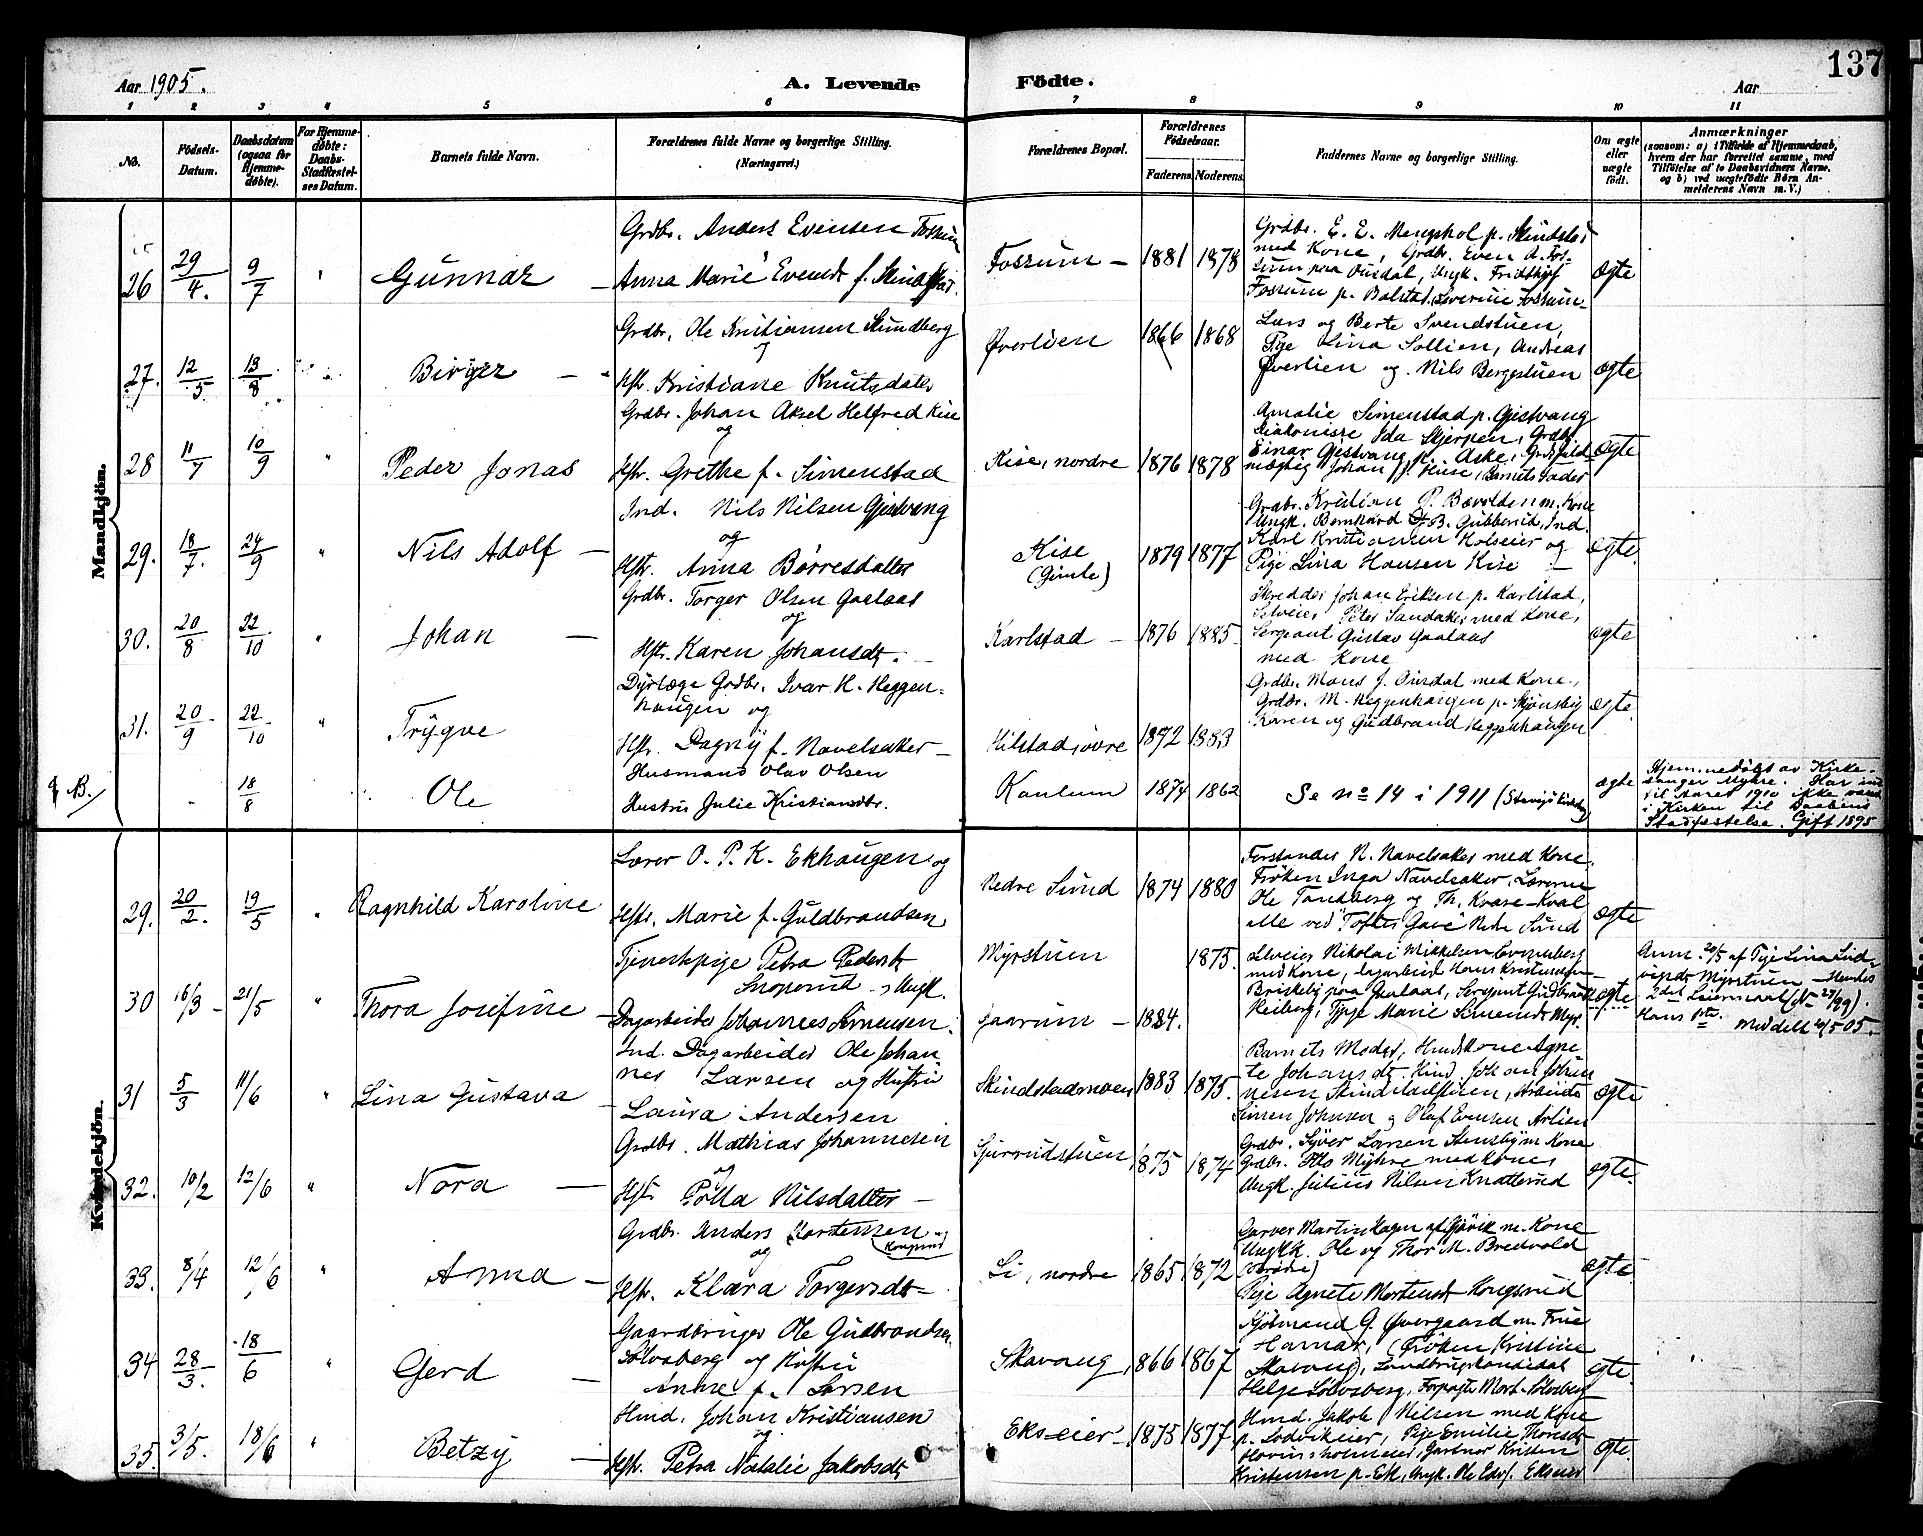 137
Aar 1905.
A. Levende
Födte.
Aar
1 2 3 4 5 6 7 8 9 10 11
No.
Födsels-
Datum.
Daabsdatum
(ogsaa for
Hjemme-
døbte).
For Hjemme-
døbte:
Daabs-
Stadfæstel-
ses Datum.
Barnets fulde Navn.
Forældrenes fulde Navne og borgerlige Stilling.
(Næringsvei.)
Forældrenes Bopæl.
Forældrenes
Födselsaar.
Faderens. Moderens.
Faddernes Navne og borgerlige Stilling.
Om ægte
eller
uægte
født.
Anmærkninger
(saasom: a) i Tilfælde af Hjemmedaab,
hvem der har forrettet samme, med
Tilføielse af to Daabsvidners Navne,
og b) ved uægtefødte Børn An-
melderens Navn m. V.)
Mandkjön.
26 29/4. 9/7 " Gunnar
Grdbr. Anders Evensen Fossum
Anna Marie Evensdt f. Skindstad.
Fossum 1881 1878
Grdbr. E. E. Mengshol p. Skindstad
med Kone, Grdbr. Even A. Fos-
sum paa Ousdal, Ungk. Fridthjof
Fossum p. Bolstad, Severine Fossum
ægte
27. 12/5 13/8 " Birger
Grdbr. Ole Kristiansen Stundberg
og
Hstr. Kristiane Knutsdatter
Øverlien 1866 1868
Lars og Berte Svendstuen,
Pige Lina Sollien, Andreas
Øverlien og Nils Bergstuen
ægte
28 11/7 10/9 " Peder Jonas
Grdbr. Johan Aksel Helfred Kise
og
Hstr. Grethe f. Simenstad
Kise, nordre 1876 1878
Amalie Simenstad p. Gjestvang
Diakonisse Ida Skjerpen, Grdbr.
Einar Gjestvang p. Aske,
Johan J. Kise, Barnets Fader
ægte
29. 18/7. 24/9 " Nils Adolf
Ind. Nils Nilsen Gjestvang
og
Hstr. Anna Børresdatter
Kise
(Gimle)
1879 1877
Grdbr. Kristian P. Bævolden m. Kone
Ungk. Bernhard B. Gubberud, Ind.
Karl Kristiansen Holseier og
Pige Lina Hansen Kise
ægte.
30. 20/8 22/10 " Johan
Grdbr. Torger Olsen Gaalaas
og
Hstr. Karen Johansdt.
Karlstad 1876 1885.
Skredder Johan Eriksen p. Karlstad,
Selveier Peter Sandaker med Kone,
Sergeant Gustav Gaalaas
med Kone
ægte
31. 20/9 22/10 " Trygve
Dyrlæge Grdbr. Ivar H. Heggen-
haugen og
Hstr. Dagny f. Navelsaker
Hilstad, øvre 1872 1883
Grdbr. Mons J. Ousdal med Kone,
Grdbr. M. Heggenhaugen p. Skjønsby
Karen og Gudbrand Heggenhaugen
ægte.
B. 18/8 Ole
Husmand Olav Olsen
Hustru Julie Kristiansdtr.
Kaulum 1874 1862
Se no 14 i 1911
ægte
Hjemmedøbt av Kirke-
sanger Myhre. Har ind
til Aaret 1910 ikke været
i Kirken til Daabens
Stadfæstelse. Gift 1895
Kvindekjön.
29. 20/2. 19/5 " Ragnhild Karoline
Lærer O. P. K. Ekhaugen og
Hstr. Marie f. Guldbrandsen
Nedre Sund 1874 1880
Forstander N. Navelsaker med Kone.
Frøken Inga Navelsaker, Lærerne
Ole Tandberg og Th. Kvase-Kval
alle ved "Toftes Gave" Nedre Sund
ægte
30 16/3 21/5 " Thora Josefine
Tjenestepige Petra Pedersdt
Ungk.
Dagarbeider Johannes Simensen.
Myrstuen 1875.
Jaarum 1884.
Selveier Nikolai Mikkelsen
med Kone, Dagarbeid Hans Kristiansen
Briskeby paa Gaalaas, Sergeant Gudbrand
Heiberg, Pige Marie Simensdt Myr.
uægte
Anm. 20/5 af Pige Lina
Myrstuen
2det Leiermaal (No 27/99).
Hans 1ste.
meddelt 20/5 05.
31 5/3 11/6 " Lina Gustava
Ind. Dagarbeider Ole Johan
nes Larsen og Hustru
Laura Andersen
Skindstadmoen 1883 1875.
Barnets Moder, Husm.kone Agne
te Johansdt. Hmd. Johan Johan
nesen Skindstadstuen, Arbeider
Simen Johnsen og Olaf Evensen Arlien
ægte
32. 10/2 12/6 " Nora
Grdbr. Mathias Johannesen
og
Hstr. Polla Nilsdatter
Sjurrudstuen 1875 1874
Grdbr. Syver Larsen Stensby m. Kone
Grdbr. Otto Myhre med Kone
Ungk. Julius Nilsen Knatterud
ægte.
33. 8/4 12/6 " Anna
Grdbr. Anders Mortensen
(Kongsrud)
og
Hstr. Klara Torgersdt
Li, nordre 1865 1872
Garver Martin Hagen af Gjøvik m. Kone
Ungkk. Ole og Thor M. Bredvold
(Brødre)
Pige Agnete Mortensdt Kongsrud
ægte
34 28/3. 18/6 " Gerd
Gaardbruger Ole Gudbrandsen
Sølvsberg og Hustru
Anne f. Larsen
Skavang 1866 1867
Kjøbmand G. Øvergaard m. Frue
Hamar, (Frøken Kristine
Skavang), Landbrugskandidat
Helge Sølvsberg, Forpagter Mort. Sølvsberg
ægte.
35. 3/5. 18/6 " Betzy
Hmd. Johan Kristiansen
og
Hstr. Petra Natalie Jakobsdt
Ekseier 1875 1877
Hmd. Jakob Nilsen med Kone
p. Lodvikeier, Pige Emilie Thorsdt
Gartner Kristen
Kristensen p. Ek, Ungk. Ole Edv. Ekseier
ægte.